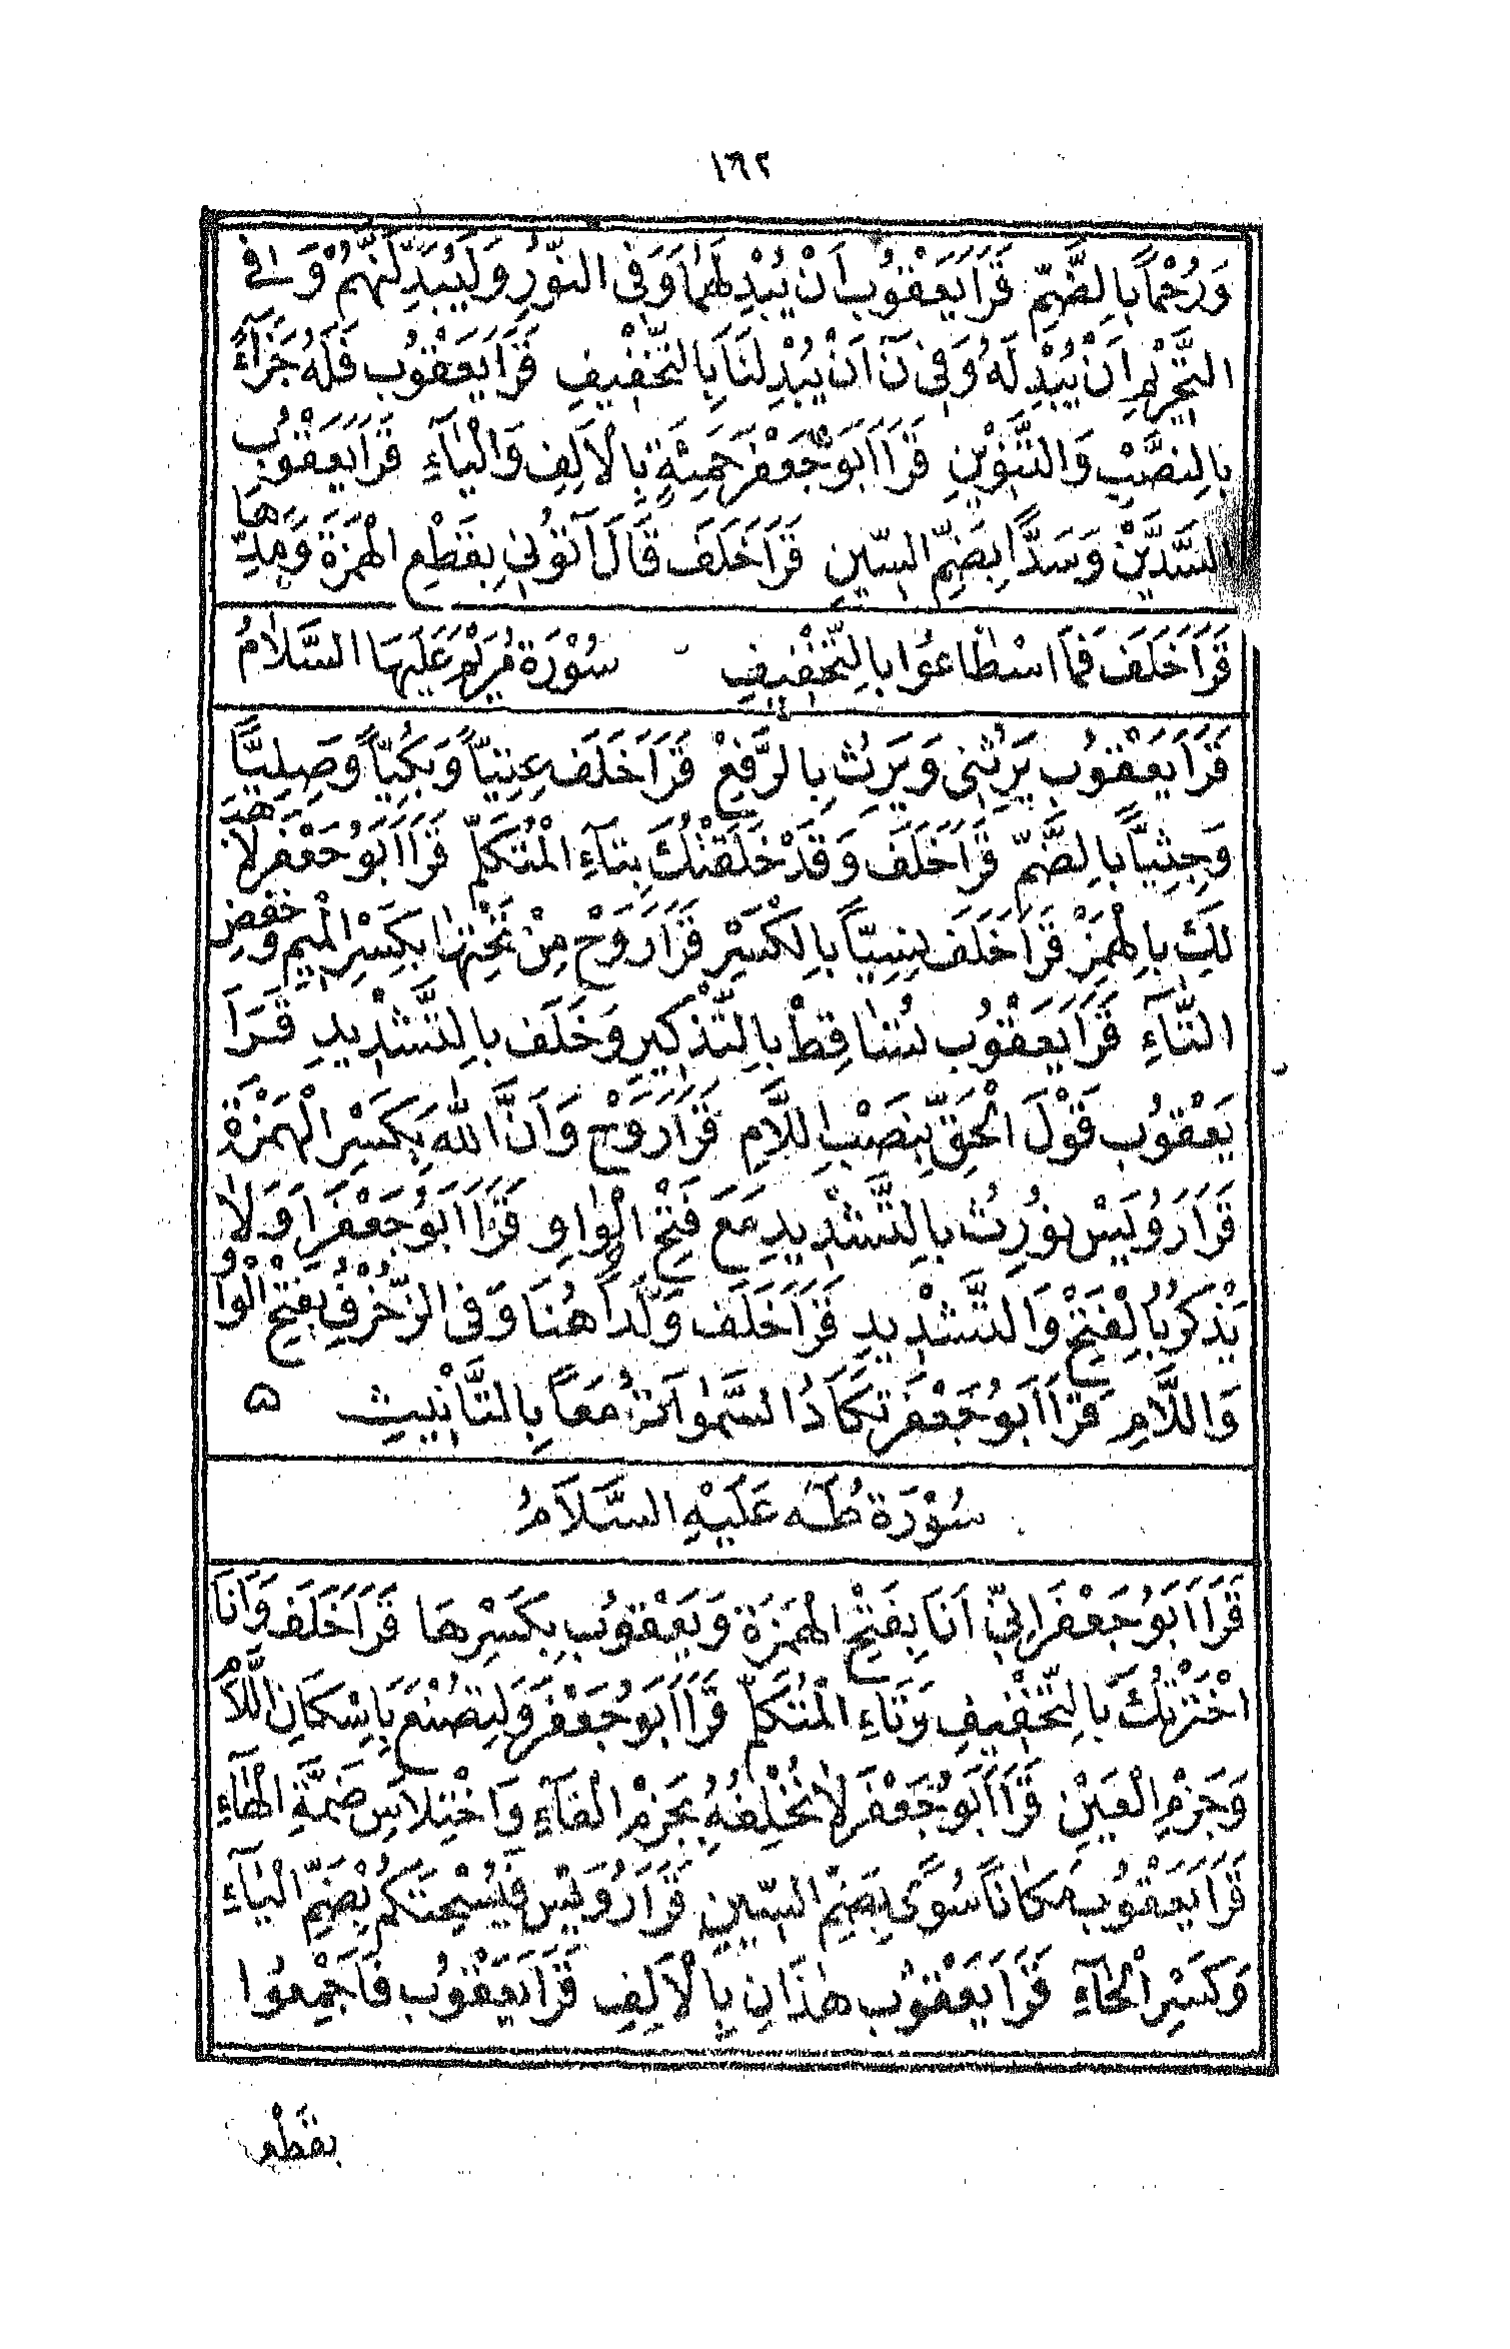 ١٦٢
وَرُحْماً بِالضَّمِّ قَرَأَ يَعْقُوبُ اَنْ يُبْدِلَهُمَا وَفِى النُّورِ وَلَيُبْدِلَنَّهُمْ وَفِى
التَّحْرِيْمِ اَنْ يُبْدِلَهُ وَفِى نٓ اَنْ يُبْدِلَنَا بِالتَّخْفِيْفِ قَرَأَ يَعْقُوبُ فَلَهُ جَزَآءً
بِالنَّصْبِ وَالتَّنْوِيْنِ قَرَأَ اَبُو جَعْفَرَ حَمِئَةٍ بِالْاَلِفِ وَالْيَآءِ قَرَأَ يَعْقُوبُ
السُّدَّيْنِ وَسُدًّا بِضَمِّ السِّيْنِ قَرَأَ خَلَفَ قَالَ آتُوْنِى بِقَطْعِ الْهَمْزَةِ وَمَدِّهَا
قَرَأَ خَلَفَ فَمَا اسْطَاعُوا بِالتَّخْفِيْفِ سُوْرَةُ مَرْيَمَ عَلَيْهَا السَّلَامُ
قَرَأَ يَعْقُوبُ يَرِثُنِى وَيَرِثُ بِالرَّفْعِ قَرَأَ خَلَفَ عِتِيّاً وَبُكِيّاً وَصِلِيّاً
وَجِثِيّاً بِالضَّمِّ قَرَأَ خَلَفَ وَقَدْ خَلَقْتُكَ بِتَآءِ الْمُتَكَلِّمِ قَرَأَ اَبُو جَعْفَرَ لِاَهَبَ
لَكِ بِالْهَمْزِ قَرَأَ خَلَفَ نِسِيّاً بِالْكَسْرِ قَرَأَ رَوْحٌ مِنْ تَحْتِهَا بِكَسْرِ الْمِيْمِ وَخَفْضِ
التَّآءِ قَرَأَ يَعْقُوبُ تُسَاقِطْ بِالتَّذْكِيْرِ وَخَلَفَ بِالتَّشْدِيْدِ قَرَأَ
يَعْقُوبُ قَوْلَ الْحَقِّ بِنَصْبِ اللَّامِ قَرَأَ رَوْحٌ وَاَنَّ اللهَ بِكَسْرِ الْهَمْزَةِ
قَرَأَ رُوَيْسٌ نُوَرِثُ بِالتَّشْدِيْدِ مَعَ فَتْحِ الْوَاوِ قَرَأَ اَبُو جَعْفَرَ اَوَلَا
يَذْكُرُ بِالْفَتْحِ وَالتَّشْدِيْدِ قَرَأَ خَلَفَ وَلَدًا هُنَا وَفِى الزُّخْرُفِ بِفَتْحِ الْوَاوِ
وَاللَّامِ قَرَأَ اَبُو جَعْفَرَ تَكَادُ السَّمٰوَاتُ مَعاً بِالتَّأْنِيْثِ ۵
سُوْرَةُ طٰهٰ عَلَيْهِ السَّلَامُ
قَرَأَ اَبُو جَعْفَرَ اِنِّىْ اَنَا بِفَتْحِ الْهَمْزَةِ وَيَعْقُوبُ بِكَسْرِهَا قَرَأَ خَلَفَ وَاَنَا
اخْتَرْتُكَ بِالتَّخْفِيْفِ وَتَاءِ الْمُتَكَلِّمِ قَرَأَ اَبُو جَعْفَرَ وَلِتُصْنَعَ بِاِسْكَانِ اللَّامِ
وَجَزْمِ الْعَيْنِ قَرَأَ اَبُو جَعْفَرَ لَا نُخْلِفُهُ بِجَزْمِ الْفَآءِ وَاخْتِلَاسِ ضَمَّةِ الْهَآءِ
قَرَأَ يَعْقُوبُ مَكَانًا سُوًى بِضَمِّ السِّيْنِ قَرَأَ رُوَيْسٌ فَيُسْحِتَكُمْ بِضَمِّ الْيَآءِ
وَكَسْرِ الْحَآءِ قَرَأَ يَعْقُوبُ هٰذَانِ بِالْاَلِفِ قَرَأَ يَعْقُوبُ فَاَجْمِعُوا
بِقَطْعِ